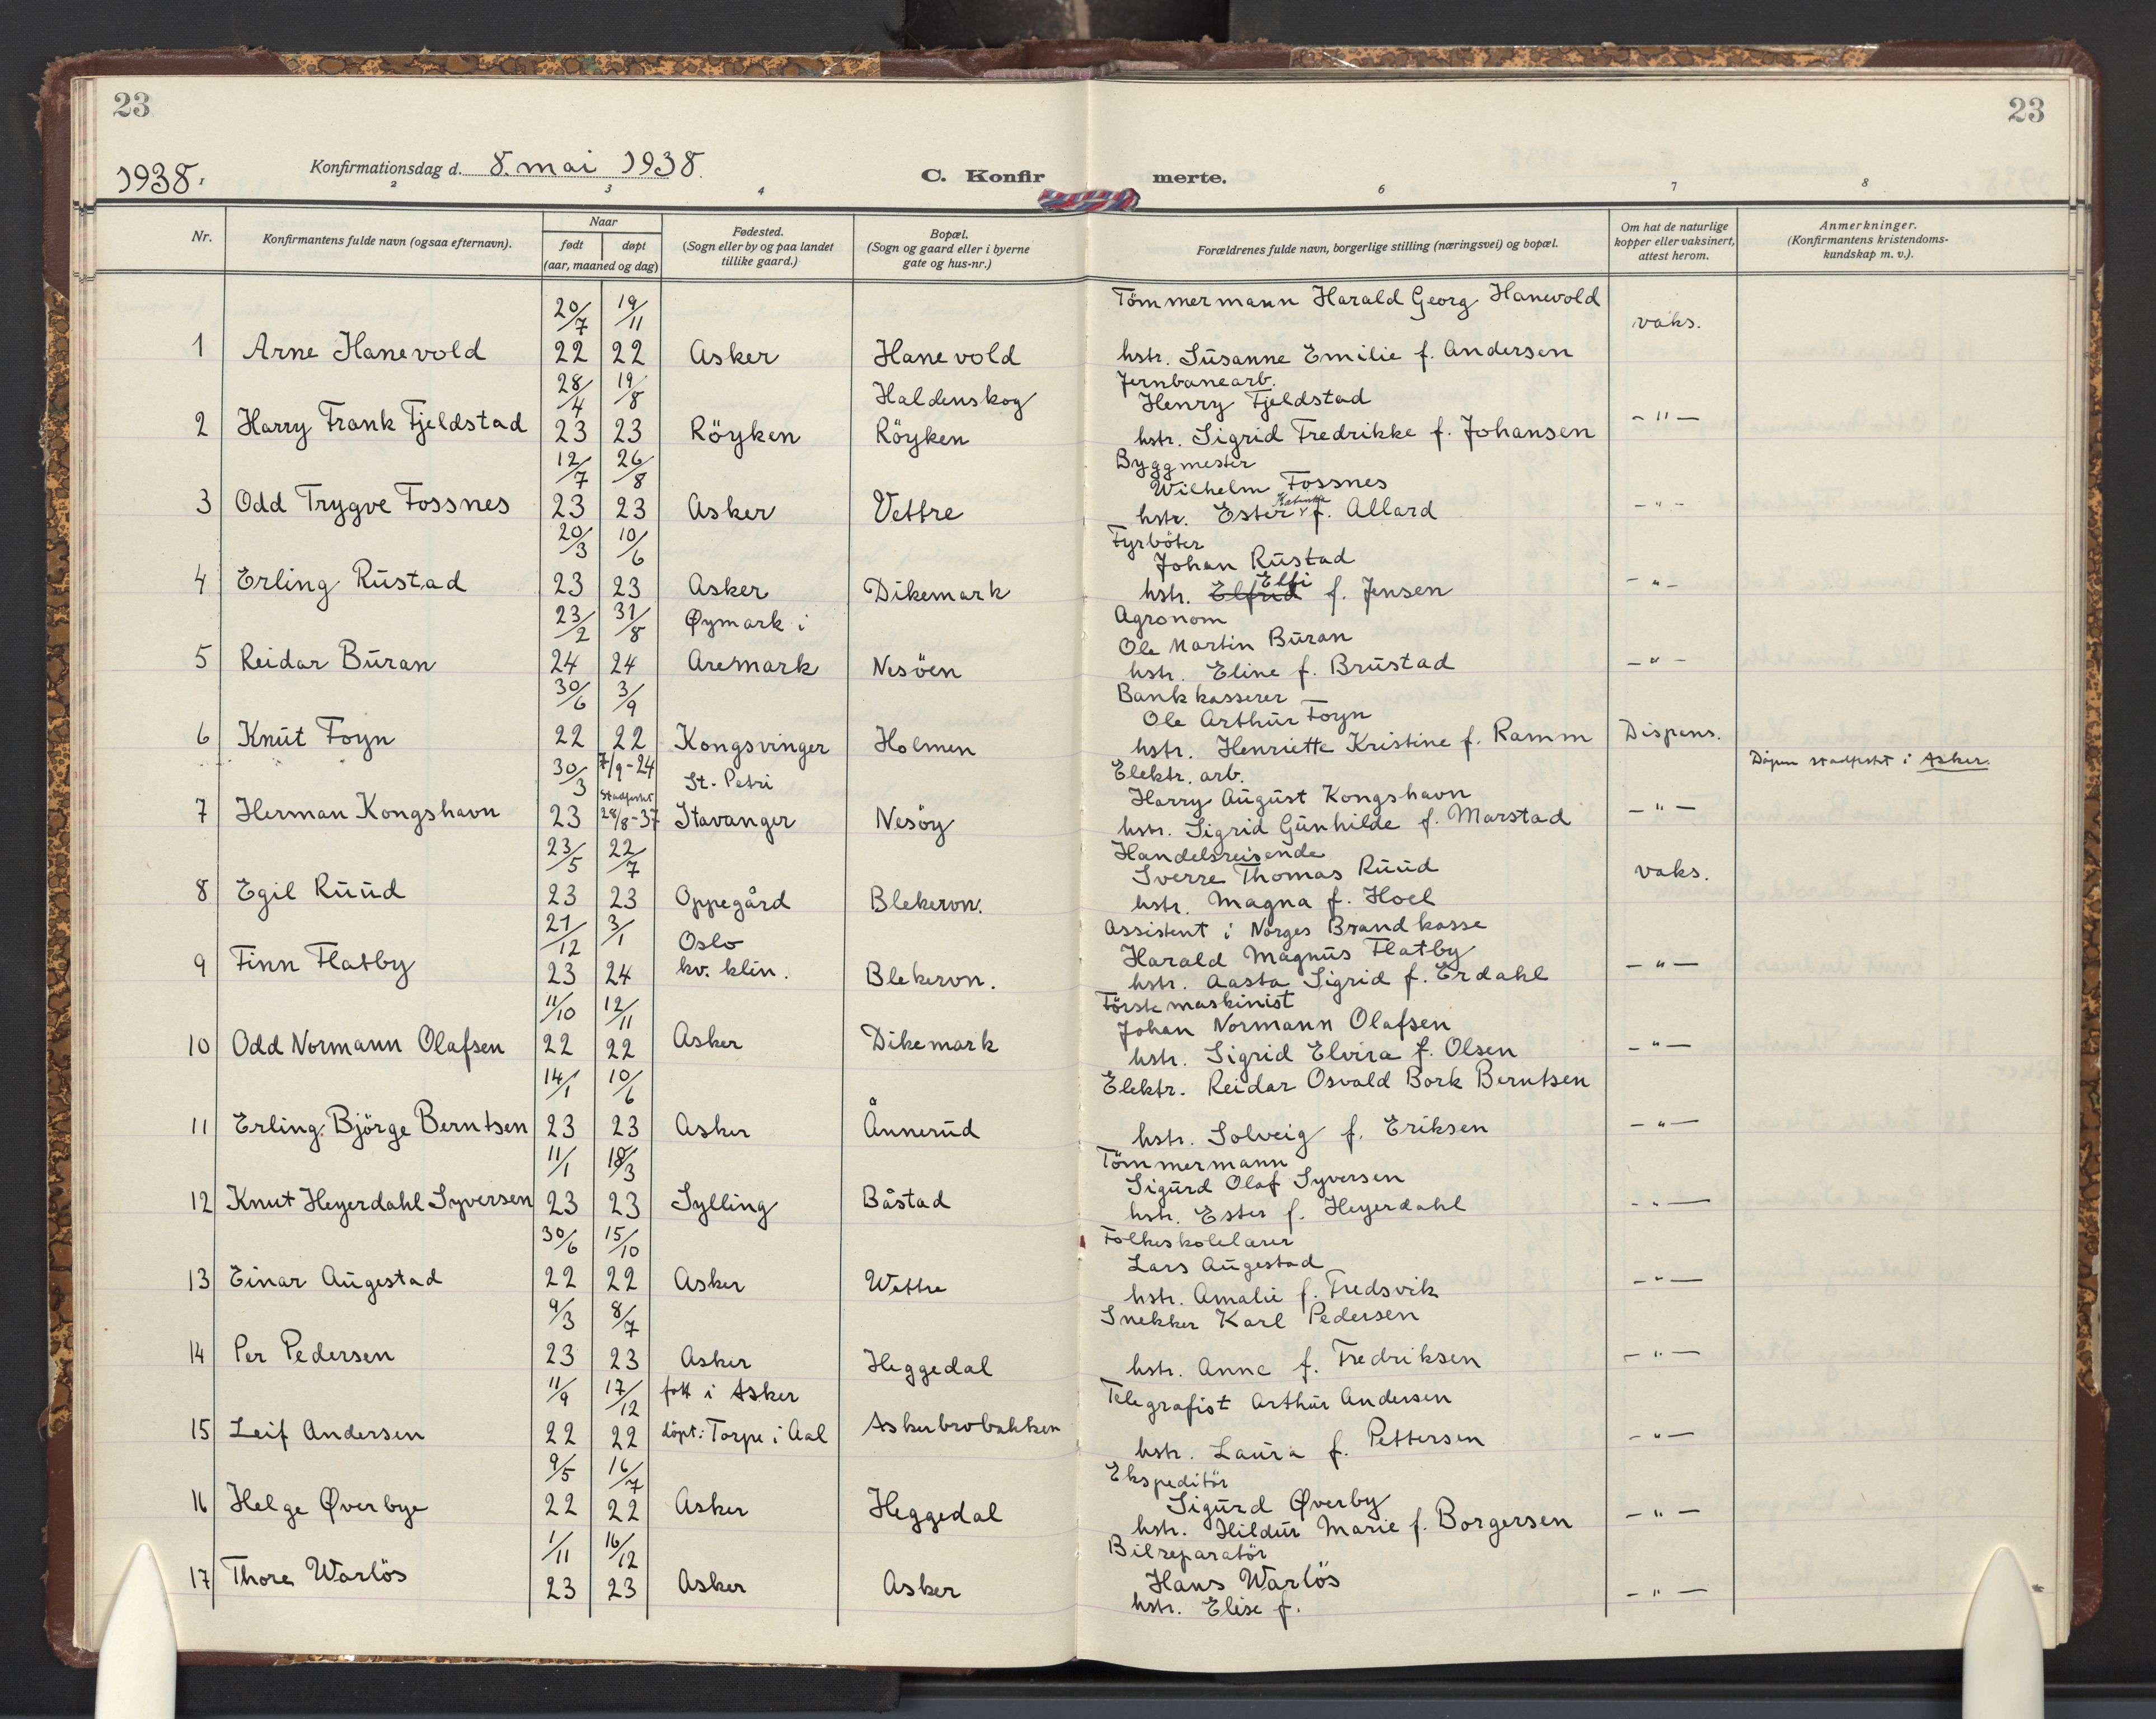 23
23
1938.
Konfirmationsdag d. 8. mai 1938.
C. Konfirmerte.
2 3 4 6 7 8
Nr.
Konfirmantens fulde navn (ogsaa efternavn).
Naar
født
døpt
(aar, maaned og dag)
Fødested.
(Sogn eller by og paa landet
tillike gaard.)
Bopæl.
(Sogn og gaard eller i byerne
gate og hus-nr.)
Forældrenes fulde navn, borgerlige stilling (næringsvei) og bopæl.
Om hat de naturlige
kopper eller vaksinert,
attest herom.
Anmerkninger.
(Konfirmantens kristendoms-
kundskap m. v.).
20/7 19/11 Tömmermann Harald Georg Hanevold vaks.
1 Arne Hanevold 22 22 Asker Hanevold hstr. Susanne Emilie f. Andersen
28/4 19/8 Haldenskog Jernbanearb.
Henry Fjeldstad
2 Harry Frank Fjeldstad 23 23 Röyken Röyken hstr. Sigrid Fredrikke f. Johansen - " -
12/7 26/8 Byggmester
Wilhelm Fossnes
3 Odd Trygve Fossnes 23 23 Asker Vettre hstr. Ester f. Allard - " -
20/3 10/6 Fyrböter
Johan Rustad
Elfi
4 Erling Rustad 23 23 Asker Dikemark hstr. Elfrid f. Jensen - " -
23/2 31/8 Øymark i Agronom
Ole Martin Buran
5 Reidar Buran 24 24 Aremark Nesöen hstr. Eline f. Brustad - " -
30/6 3/9 Bankkasserer
Ole Arthur Foyn
6 Knut Foyn 22 22 Kongsvinger Holmen hstr. Henriette Kristine f. Ramm Dispens.
30/3 7/9-24 St. Petri Elektr. arb. Dåpen stadfestet i Asker.
Stadfestet Harry August Kongshavn
7 Herman Kongshavn 23 28/8-37 Stavanger Nesöy hstr. Sigrid Gunhilde f. Marstad - " -
23/5 22/7 Handelsreisende
Sverre Thomas Ruud vaks.
8 Egil Ruud 23 23 Oppegård Blekervn. hstr. Magna f. Hoel
21/12 3/1 Oslo Assistent i Norges Brandkasse
Harald Magnus Flatby
9 Finn Flatby 23 24 kv. klin. Blekervn. hstr. Aasta Sigrid f. Erdahl - " -
11/10 12/11 Förstemaskinist
Johan Normann Olafsen
10 Odd Normann Olafsen 22 22 Asker Dikemark hstr. Sigrid Elvira f. Olsen - " -
14/1 10/6 Elektr. Reidar Osvald Bork Berntsen
11 Erling Björge Berntsen 23 23 Asker Ånnerud hstr. Solveig f. Eriksen - " -
11/1 18/3 Tömmermann
Sigurd Olaf Syversen
12 Knut Heyerdahl Syversen 23 23 Sylling Båstad hstr. Ester f. Heyerdahl - " -
30/6 15/10 Folkeskolelærer
Lars Augestad
13 Einar Augestad 22 22 Asker Wettre hstr. Amalie f. Fredsvik - " -
9/3 8/7 Snekker Karl Pedersen
14 Per Pedersen 23 23 Asker Heggedal hstr. Anna f. Fredriksen - " -
11/9 17/12 født i Asker Telegrafist Arthur Andersen
15 Leif Andersen 22 22 döpt: Torpe i Aal Askerbrobakken hstr. Laura f. Pettersen - " -
9/5 16/7 Ekspeditör
Sigurd Øverby
16 Helge Øverbye 22 22 Asker Heggedal hstr. Hildur Marie f. Borgersen - " -
1/11 16/12 Bilreparatör
Hans Warlös
17 Thore Warlös 23 23 Asker Asker hstr. Elise f. - " -